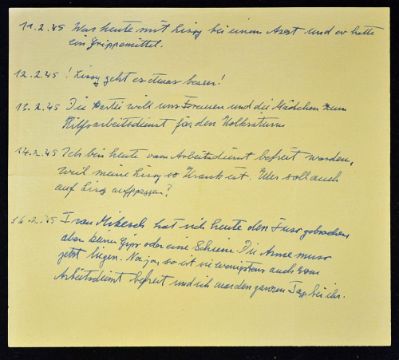 11.2.45 War heute mit Lissy bei einem Arzt und er hatte
ein Grippemittel.
12.2.45 ! Lissy geht es etwas besser!
13.2.45 Die Partei will uns Frauen und die Mädchen zum
Hilfsarbeitsdienst für den Volkssturm
14.2.45 Ich bin heute vom Arbeitsdienst befreit worden,
weil meine Lissy so krank ist. Wer soll auch
auf Lissy aufpassen?
16.2.45 Frau Mikesch hat sich heute den Fuss gebrochen
aber keine Gips oder eine Schiene. Die Arme muss
jetzt liegen. Na ja, so ist sie wenigstens auch vom
Arbeitsdienst befreit und ich war den ganzen Tag bei ihr.